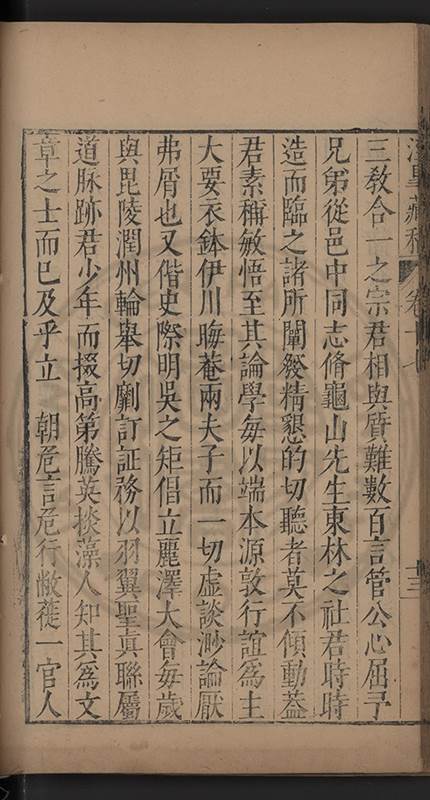 藏稿 卷十 十三
三敎合一之宗君相與質難數百言管公心屈予
兄弟從邑中同志脩龜山先生東林之社君時時
造而臨之諸所闡繹精懇的切聽者莫不傾動蓋
君素稱敏悟至其論學每以端本源敦行誼爲主
大要衣鉢伊川晦菴兩夫子而一切虛談渺論厭
弗屑也又偕史際明吳之矩倡立麗澤大會每歲
與毘陵潤州輪舉切劘訂証務以羽翼聖眞聯屬
道脉跡君少年而掇高第騰英掞藻人知其爲文
章之士而已及乎立 朝危言危行敝蓰一官人